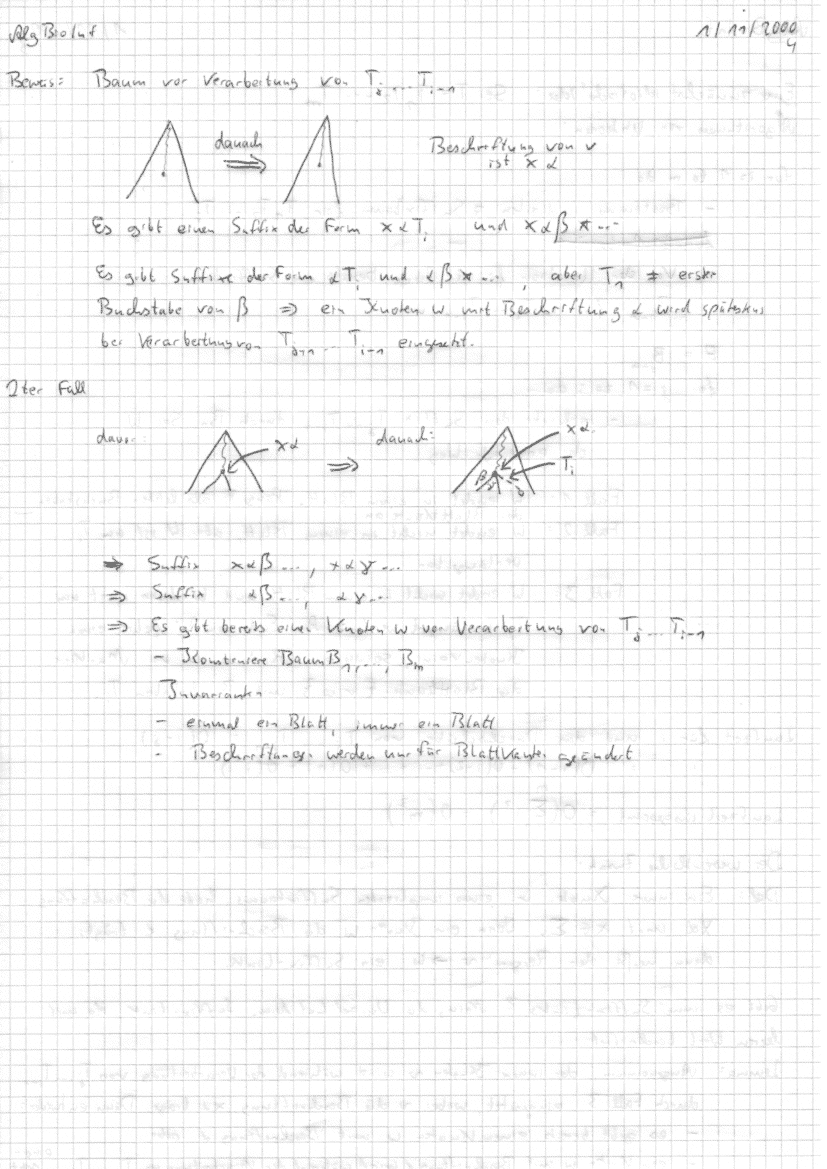 Alg BioInf 1/11/2000
4
Beweis: Baum vor Verarbeitung von T_j ... T_{i-1}
danach
⇒
Beschriftung von v
ist xα
Es gibt einen Suffix der Form xαT_i und xαβ*...
Es gibt Suffixe der Form αT_i und αβ*..., aber T_1 ≠ erster
Buchstabe von β ⇒ ein Knoten w mit Beschriftung α wird spätestens
bei Verarbeitung von T_{j+1} ... T_{i-1} eingesetzt.
2ter Fall
davor: xα ⇒ danach: xα
T_i
β γ
⇒ Suffix xαβ..., xαγ...
⇒ Suffix αβ..., αγ...
⇒ Es gibt bereits einen Knoten w vor Verarbeitung von T_j ... T_{i-1}
- Konstruiere Baum B_1, ..., B_m
Invarianten
- einmal ein Blatt, immer ein Blatt
- Beschriftungen werden nur für Blattkanten geändert